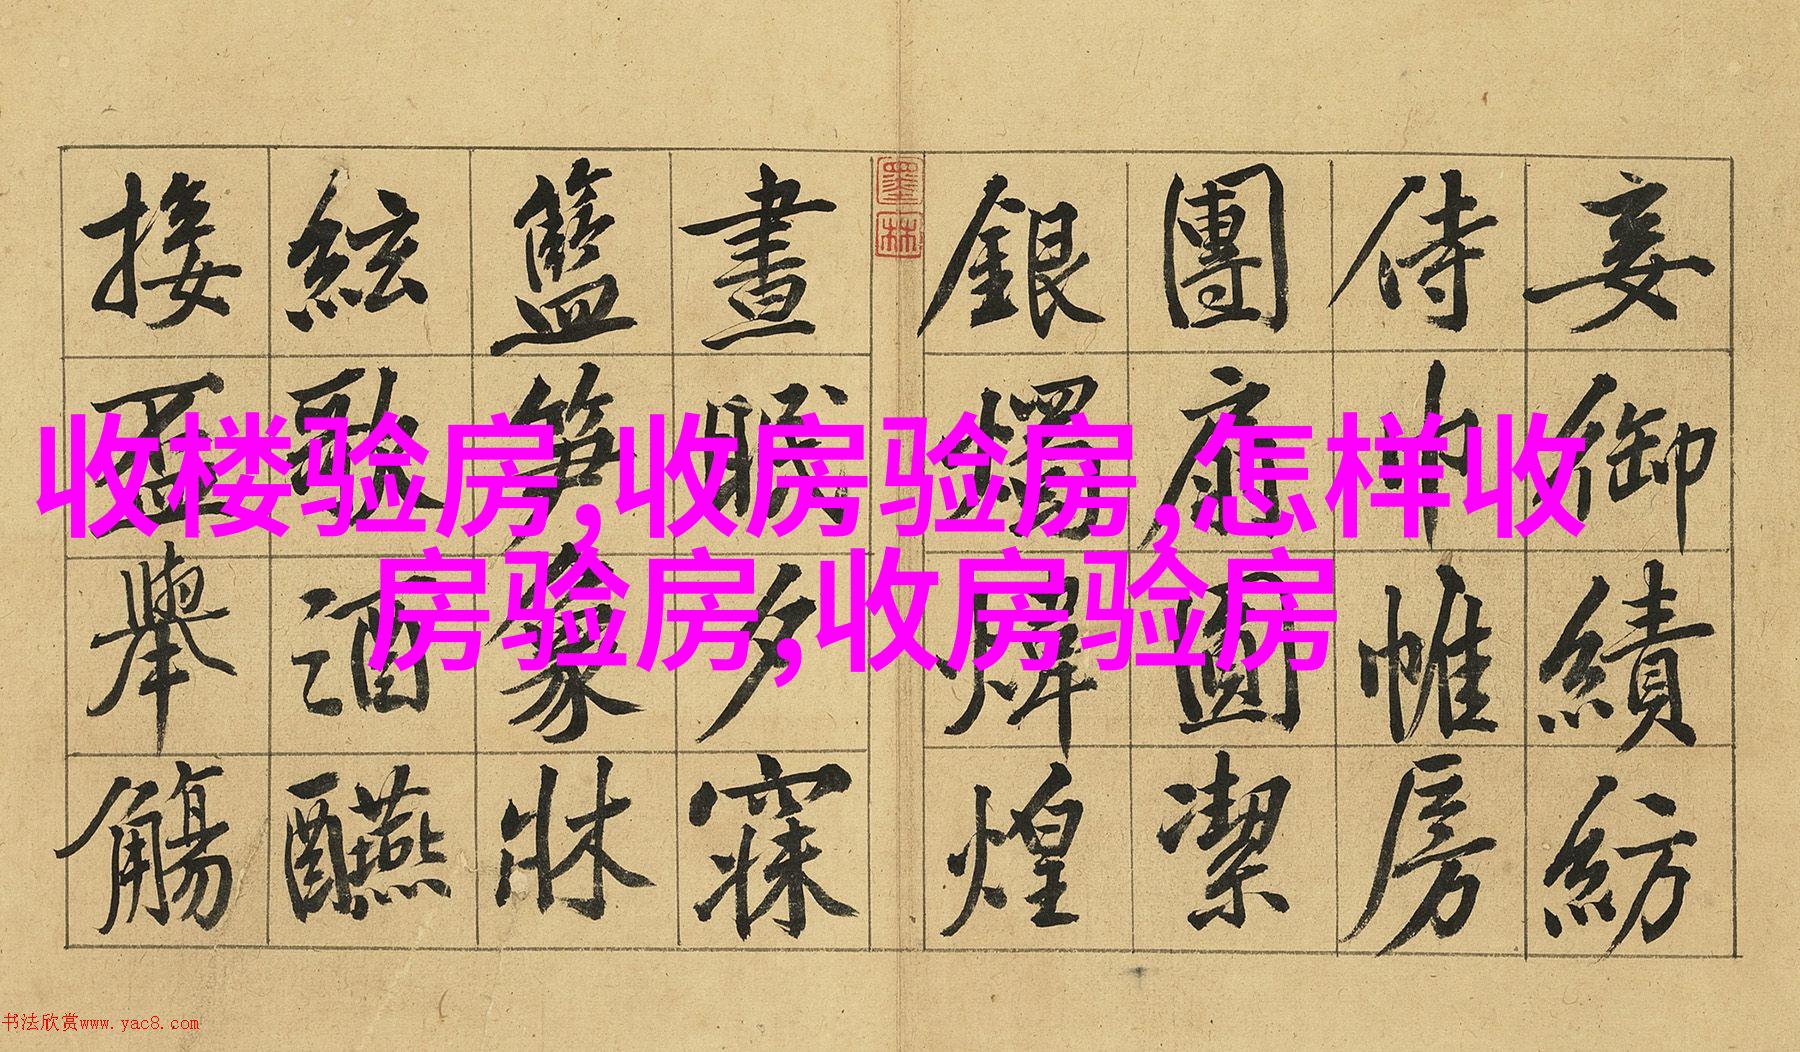 妾御績紡
侍巾帷房
團扇圓潔
銀燭煒煌
晝眠夕寐
籃笋象牀
絃歌酒醼
接盃舉觴
墨林
收楼验房,收房验房,怎样收
房验房,收房验房
书法欣赏www.yac8.com